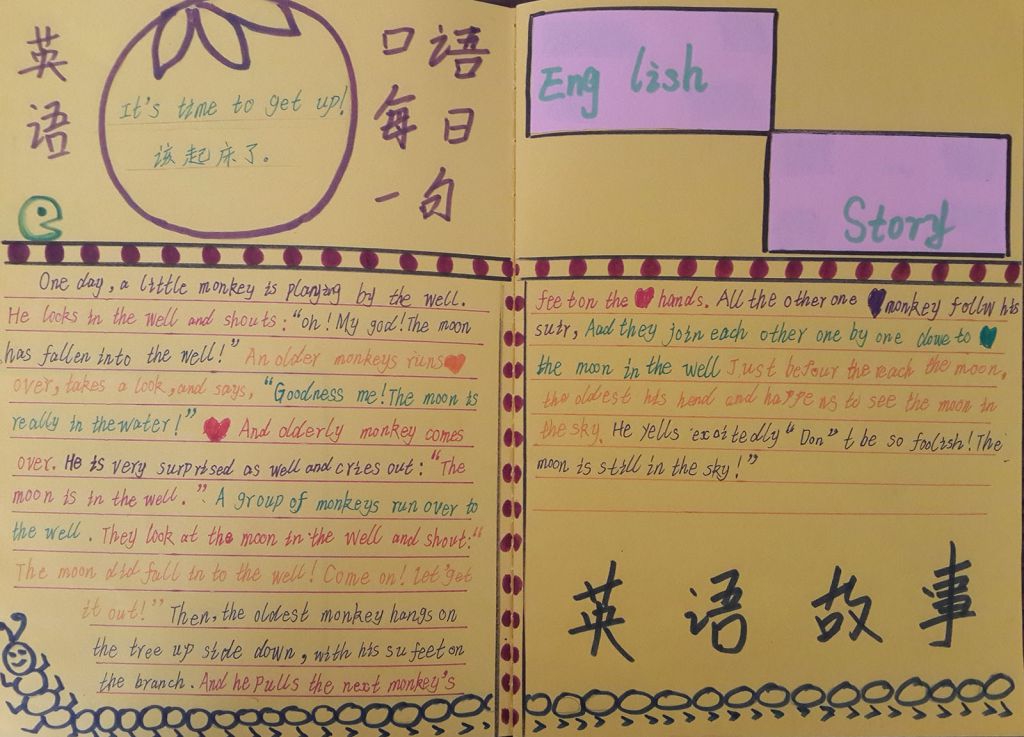 英语
It's time to get up!
该起床了。
口语
每日
一句
One day, a little monkey is playing by the well.
He looks in the well and shouts: "oh! My god! The moon
has fallen into the well!" An older monkeys runs
over, takes a look, and says, "Goodness me! The moon is
really in the water!" And olderly monkey comes
over. He is very surprised as well and cries out: "The
moon is in the well." A group of monkeys run over to
the well. They look at the moon in the well and shout: "
The moon did fall in to the well! Come on! let 'get
it out!" Then, the oldest monkey hangs on
the tree up side down, with his su feet on
the branch. And he pulls the next monkey's
Eng lish
Story
feet on the hands. All the other one monkey follw his
suir, And they join each other one by one dowe to
the moon in the well Just befour the reach the moon,
the oldest his hend and happens to see the moon in
the sky. He yells excitedly "Don" t be so foolish! The
moon is still in the sky!"
英语故事